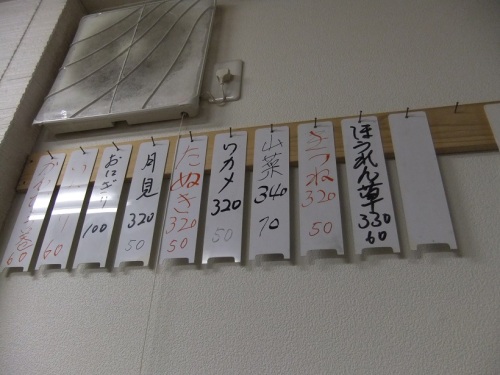 ほうれん草
330
60
きつね
320
50
山菜
340
70
ワカメ
320
50
たぬき
320
50
月見
320
50
おにぎり
100
60
60